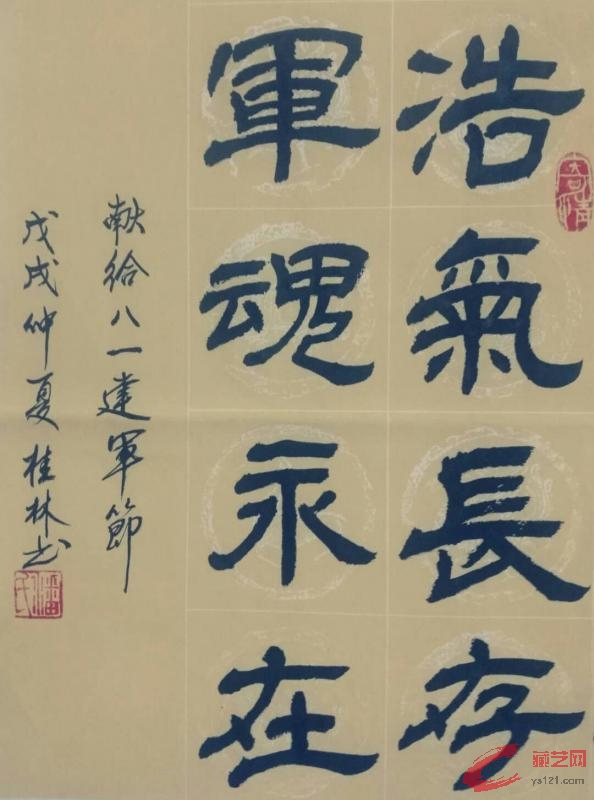 浩氣長存
軍魂永在
献给八一建军節
戊戌仲夏桂林书
寄情
藏艺网
ys121.com